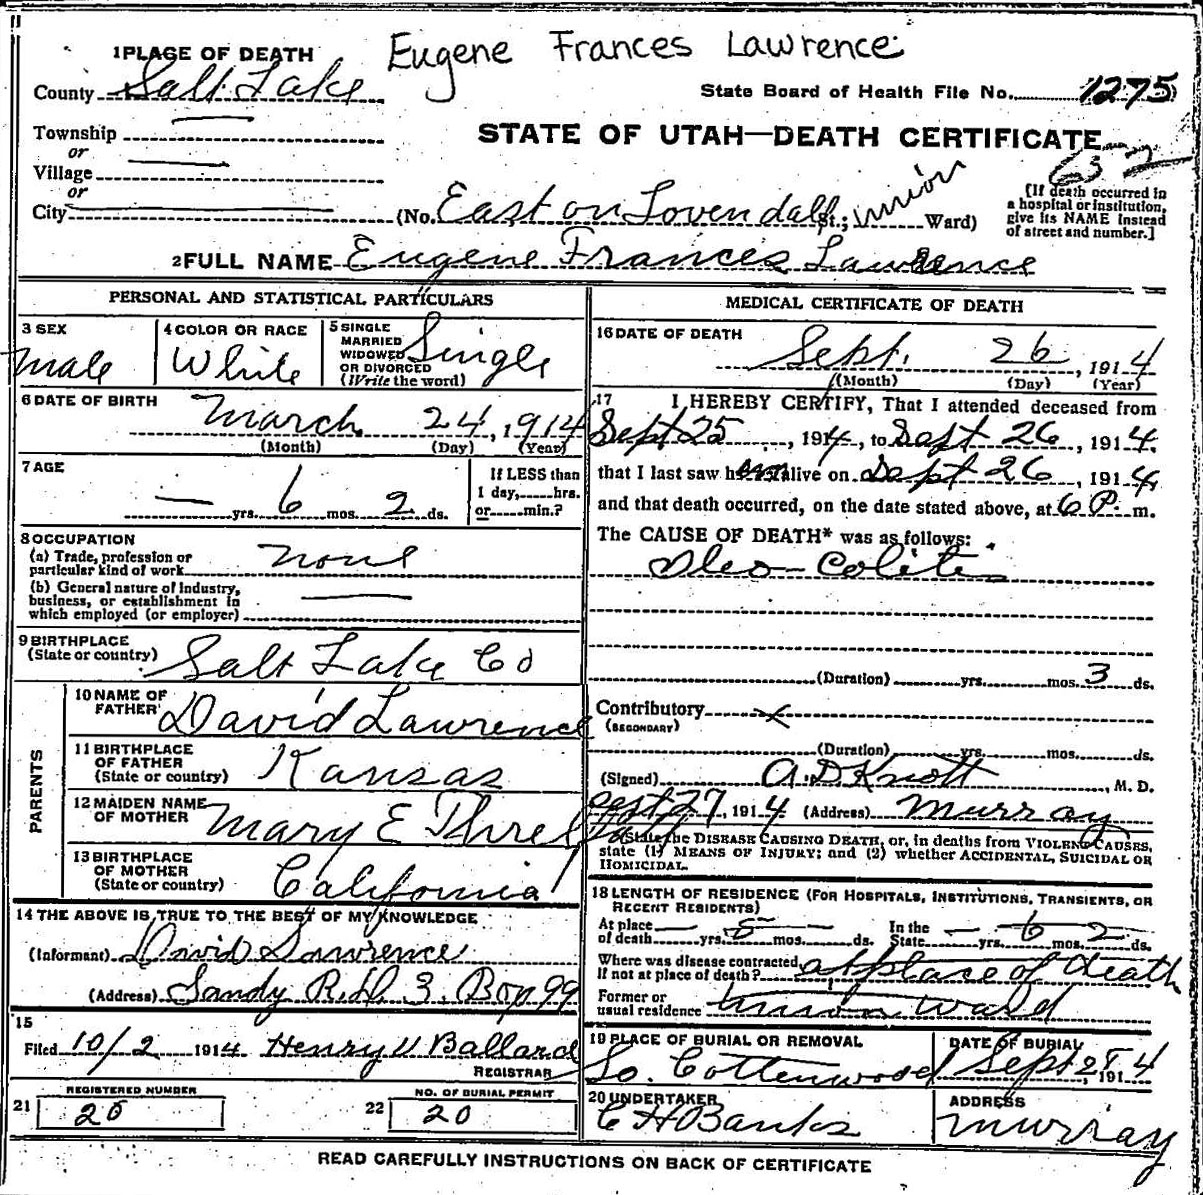 Eugene Frances Lawrence
1 PLACE OF DEATH
County Salt Lake
State Board of Health File No. 1275
Township
or
Village
or
City
STATE OF UTAH—DEATH CERTIFICATE
(No. East on Lovendall St.; Union Ward)
[If death occurred in
a hospital or institution,
give its NAME instead
of street and number.]
2 FULL NAME Eugene Frances Lawrence
PERSONAL AND STATISTICAL PARTICULARS
3 SEX
Male
4 COLOR OR RACE
White
5 SINGLE
MARRIED
WIDOWED
OR DIVORCED
(Write the word)
Single
6 DATE OF BIRTH
March 24, 1914
(Month) (Day) (Year)
7 AGE
— yrs. 6 mos. 2 ds.
If LESS than
1 day,......hrs.
or......min.?
8 OCCUPATION
(a) Trade, profession or
particular kind of work none
(b) General nature of industry,
business, or establishment in
which employed (or employer)
9 BIRTHPLACE
(State or country) Salt Lake Co
PARENTS
10 NAME OF
FATHER David Lawrence
11 BIRTHPLACE
OF FATHER
(State or country) Kansas
12 MAIDEN NAME
OF MOTHER Mary E
13 BIRTHPLACE
OF MOTHER
(State or country) California
14 THE ABOVE IS TRUE TO THE BEST OF MY KNOWLEDGE
(Informant) David Lawrence
(Address) Sandy R.D. 3. Box 99
15
Filed 10/2 1914 Henry V Ballard
REGISTRAR
REGISTERED NUMBER
21 20
NO. OF BURIAL PERMIT
22 20
MEDICAL CERTIFICATE OF DEATH
16 DATE OF DEATH
Sept. 26, 1914
(Month) (Day) (Year)
17 I HEREBY CERTIFY, That I attended deceased from
Sept 25, 1914, to Sept 26, 1914.
that I last saw him alive on Sept 26, 1914,
and that death occurred, on the date stated above, at 6 P. m.
The CAUSE OF DEATH* was as follows:
Ileo-Colitis
(Duration) yrs. mos. 3 ds.
Contributory
(SECONDARY)
(Duration) yrs. mos. ds.
(Signed) A. D. Knott, M. D.
Sept 27, 1914 (Address) Murray
*State the DISEASE CAUSING DEATH, or, in deaths from VIOLENT CAUSES,
state (1) MEANS OF INJURY; and (2) whether ACCIDENTAL, SUICIDAL OR
HOMICIDAL.
18 LENGTH OF RESIDENCE (FOR HOSPITALS, INSTITUTIONS, TRANSIENTS, OR
RECENT RESIDENTS)
At place
of death — yrs. 5 mos. — ds.
In the
State — yrs. 6 mos. 2 ds.
Where was disease contracted
if not at place of death? at place of death
Former or
usual residence Union Ward
19 PLACE OF BURIAL OR REMOVAL
So. Cottenwood
DATE OF BURIAL
Sept 28, 1914
20 UNDERTAKER
C H Banks
ADDRESS
Murray
READ CAREFULLY INSTRUCTIONS ON BACK OF CERTIFICATE